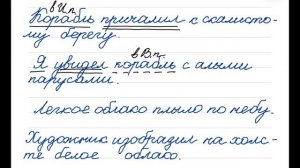 в И.п.
Корабль причалил к скалисто-
му берегу.
в В.п.
Я увидел корабль с алыми
парусами.
Легкое облако плыло по небу.
Художник изобразил на холс-
те белое облако.